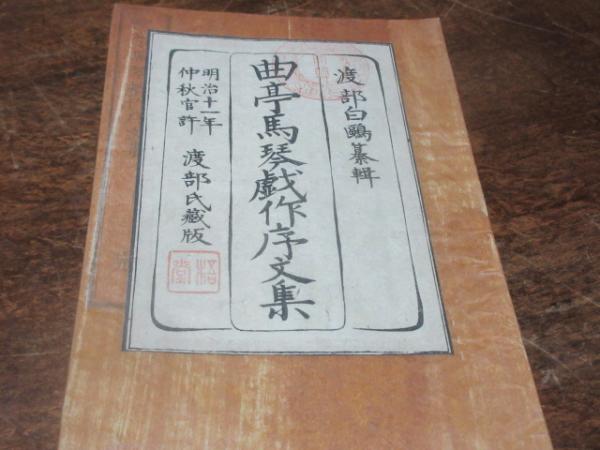 渡部白鷗纂輯
曲亭馬琴戯作序文集
明治十一年
仲秋官許
渡部氏藏版